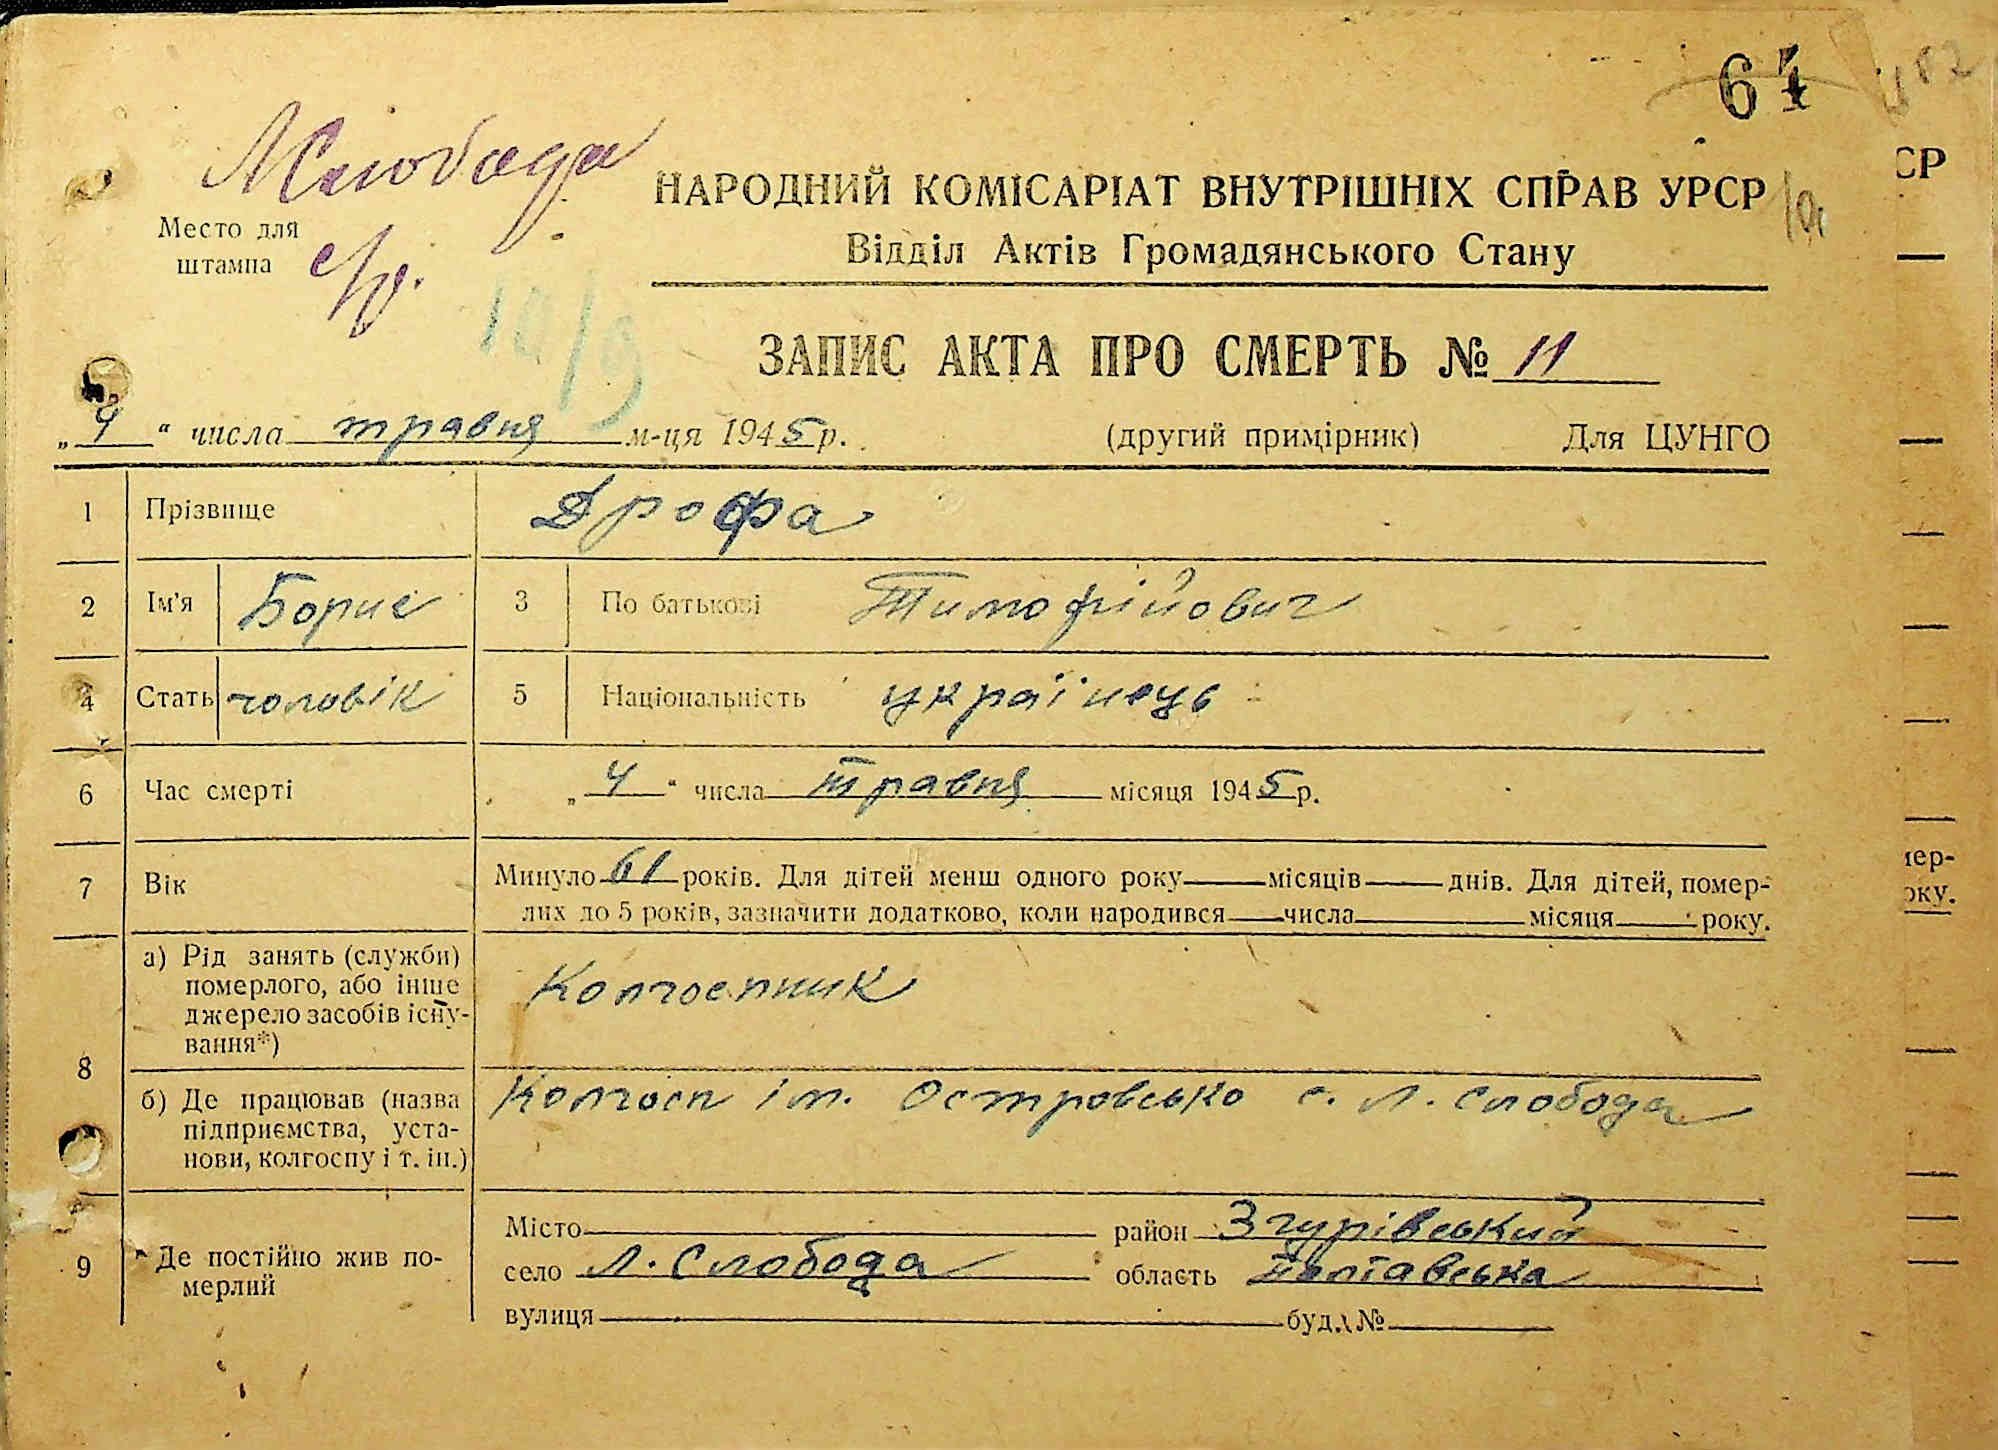 64
Л Слобода
с/р.
Место для
штампа
НАРОДНИЙ КОМІСАРІАТ ВНУТРІШНІХ СПРАВ УРСР
Відділ Актів Громадянського Стану
10/9
ЗАПИС АКТА ПРО СМЕРТЬ № 11
„ 9 “ числа травня м-ця 1945 р. (другий примірник) Для ЦУНГО
1 Прізвище Дрофа
2 Ім'я Борис 3 По батькові Тимофійович
4 Стать чоловік 5 Національність українець
6 Час смерті „ 4 “ числа травня місяця 1945 р.
7 Вік Минуло 61 років. Для дітей менш одного року місяців днів. Для дітей, помер-
лих до 5 років, зазначити додатково, коли народився числа місяця року.
8 а) Рід занять (служби)
померлого, або інше
джерело засобів існу-
вання*)
Колгоспник
б) Де працював (назва
підприємства, уста-
нови, колгоспу і т. ін.)
Колгосп ім. Островсько с. Л. Слобода
9 Де постійно жив по-
мерлий
Місто район Згурівський
село Л. Слобода область Полтавська
вулиця буд. №
СР
мер-
оку.